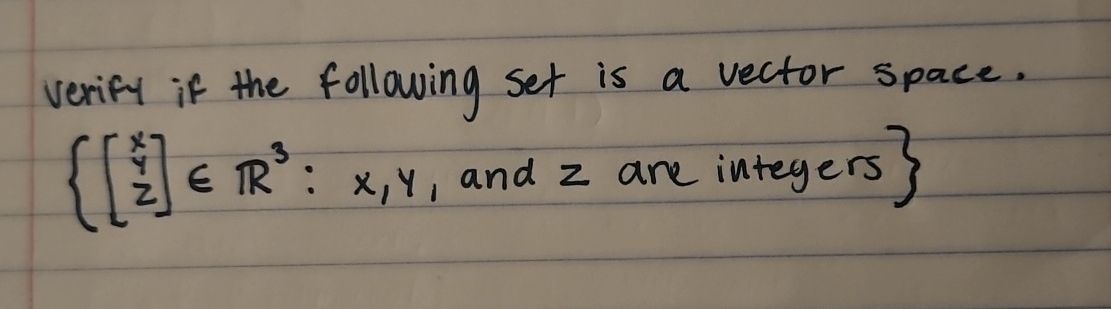 verify if the following set is a vector space.
{[x y z] ∈ ℝ³ : x, y, and z are integers}